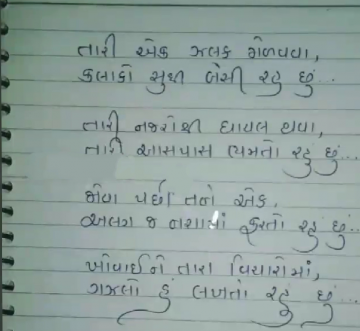 તારી એક ઝલક મેળવવા,
કલાકો સુધી બેસી રહુ છું...
તારી નજરોથી ઘાયલ થવા,
તારી આસપાસ ભમતો રહું છું..
જોયા પછી તને એક,
અલગ જ નશામાં ફરતો રહુ છું...
ખોવાઈને તારા વિચારોમાં,
ગઝલો હું લખતો રહુ છું...